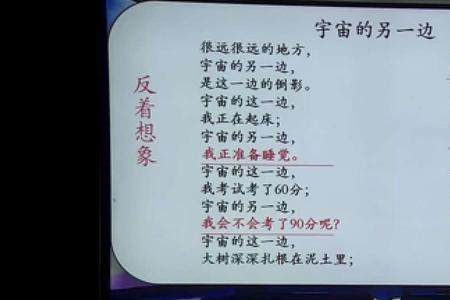 宇宙的另一边
反着想象
很远很远的地方，
宇宙的另一边，
是这一边的倒影。
宇宙的这一边，
我正在起床；
宇宙的另一边，
我正准备睡觉。
宇宙的这一边，
我考试考了60分；
宇宙的另一边，
我会不会考了90分呢？
宇宙的这一边，
大树深深扎根在泥土里；